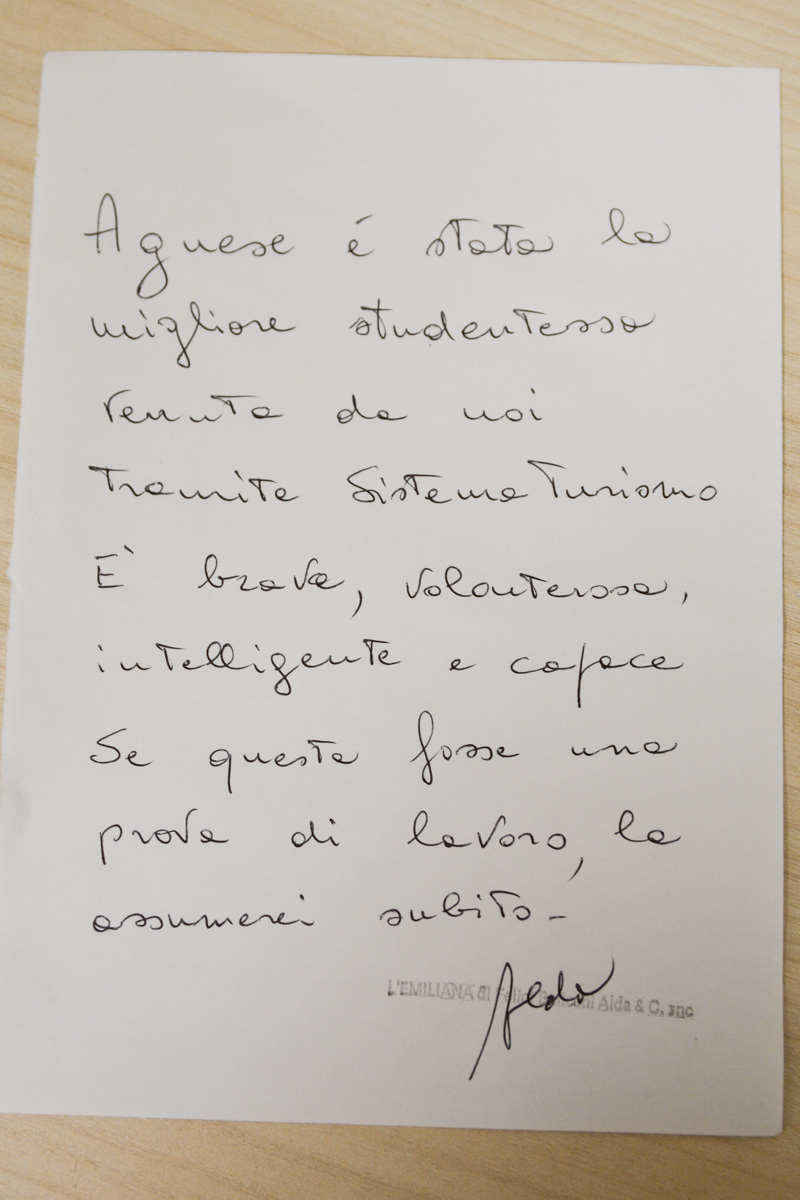 Agnese é stata la
migliore studentessa
venuta da noi
tramite Sistema Turismo
E' brava, volonterosa,
intelligente e capace
Se questa fosse una
prova di lavoro, la
assumerei subito -
L'EMILIANA di Alda & C. snc
Alda